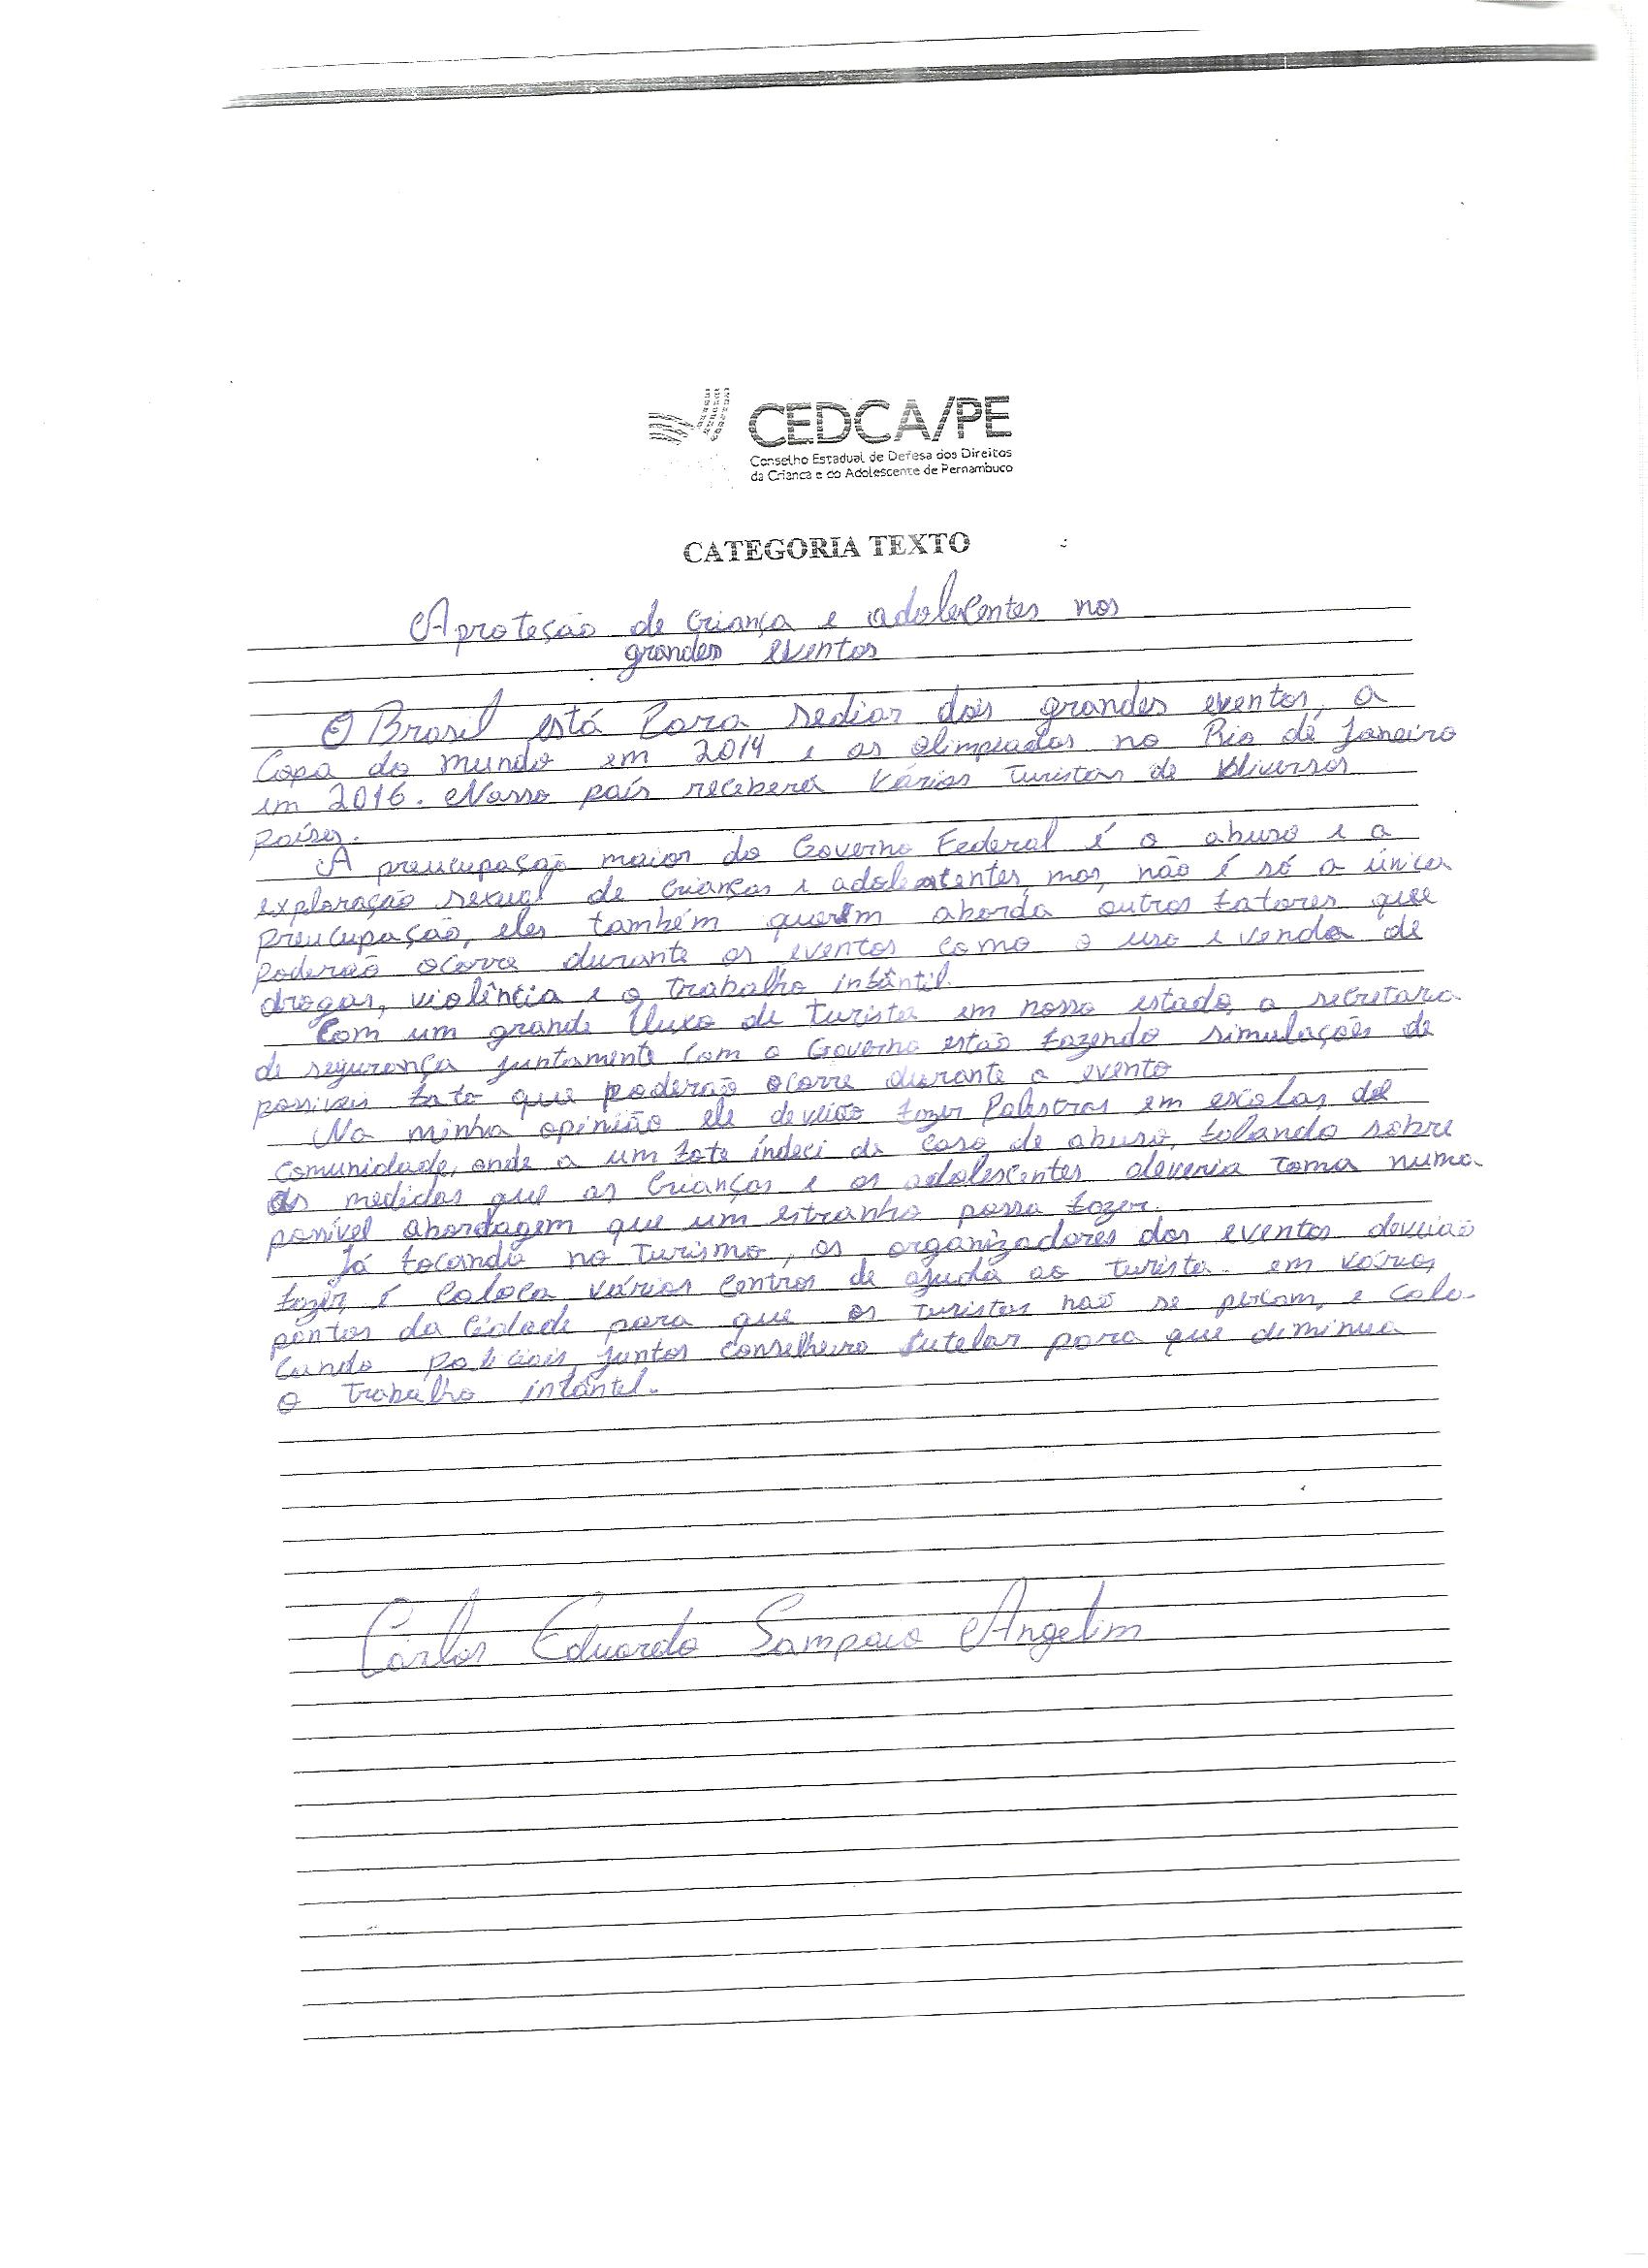 CEDCA/PE
Conselho Estadual de Defesa dos Direitos
da Criança e do Adolescente de Pernambuco
CATEGORIA TEXTO
A proteção de Criança e adolecentes nos
grandes eventos
O Brasil está Para sediar dois grandes eventos, a
Copa do mundo em 2014 e as olimpiadas no Rio de Janeiro
em 2016. Nosso país receberá Vários turistas de diversos
países.
A preucupação maior do Governo Federal é o abuso e a
exploração sexual de crianças e adolecentes, mas, não é só a única
preucupação, eles também querem aborda outros fatores que
poderão ocorre durante os eventos como o uso e venda de
drogas, violência e o trabalho infântil.
Com um grande fluxo de turista em nosso estado, a secretaria
de segurança juntamente com o Governo estão fazendo simulações de
possiveis fato que poderão ocorre durante o evento
Na minha opinião ele deverão fazer Palestras em escolas de
comunidade, onde a um fote índeci de caso de abuso, falando sobre
as medidas que as Crianças e os adolescentes deveria toma numa
possível abordagem que um estranho possa fazer.
Já focando no turismo, os organizadores dos eventos deveião
fazer é coloca vários centros de ajuda ao turista em vários
pontos da cidade para que os turistas não se percam, e colo-
cando policiais juntos conselheiro tutelar para que diminua
o trabalho infântil.
Carlos Eduardo Sampaio Angelim